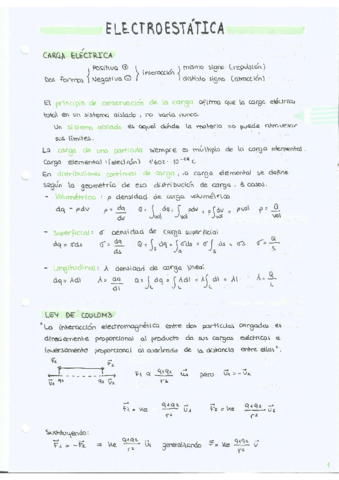 ELECTROESTÁTICA
CARGA ELÉCTRICA
Dos formas { Positiva ⊕ Negativa ⊖ } interacción { mismo signo (repulsión) distinto signo (atracción)
El principio de conservación de la carga afirma que la carga eléctrica
total en un sistema aislado, no varía nunca.
Un sistema aislado es aquel donde la materia no puede atravesar
sus límites.
La carga de una partícula siempre es múltiplo de la carga elemental.
Carga elemental: (electrón) 1'602 · 10⁻¹⁹ C
En distribuciones continuas de carga, la carga elemental se define
según la geometría de esa distribución de carga. 3 casos.
- Volumétrica: ρ densidad de carga volumétrica
dq = ρdv ρ = dq/dv Q = ∫vol dq = ∫vol ρdv = ρ∫vol dv = ρ vol ρ = Q/vol
- Superficial: σ densidad de carga superficial
dq = σds σ = dq/ds Q = ∫s dq = ∫s σds = σ∫s ds = σs σ = Q/s
- Longitudinal: λ densidad de carga lineal
dq = λdl λ = dq/dl Q = ∫L dq = ∫L λdl = λ∫L dl = λL λ = Q/L
LEY DE COULOMB
"La interacción electromagnética entre dos partículas cargadas es
directamente proporcional al producto de sus cargas eléctricas e
inversamente proporcional al cuadrado de la distancia entre ellas".
F₁ F₂ u₁ q₁ q₂ u₂
F₁ α q₁q₂/r² pero u₁ = -u₂
F₁ = Ke q₁q₂/r² u₁ F₂ = Ke q₁q₂/r² u₂
Sustituyendo:
F₁ = -F₂ = Ke q₁q₂/r² u₁ generalizando F = Ke q₁q₂/r² u
1